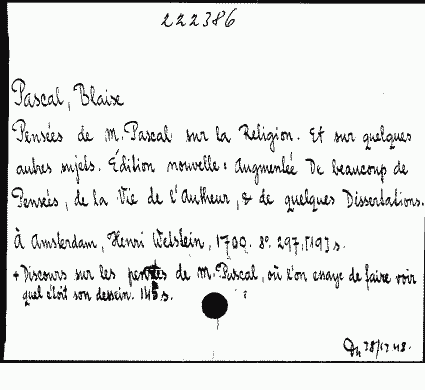 222386
Pascal, Blaise
Pensées de M. Pascal sur la Religion. Et sur quelques
autres sujets. Édition nouvelle: Augmentée De beaucoup de
Pensées, de la Vie de l'Autheur, & de quelques Dissertations.
À Amsterdam, Henri Wetstein, 1700. 8º. 297, [19] s.
+ Discours sur les pensées de M. Pascal, où l'on essaye de faire voir
quel étoit son dessein. s.